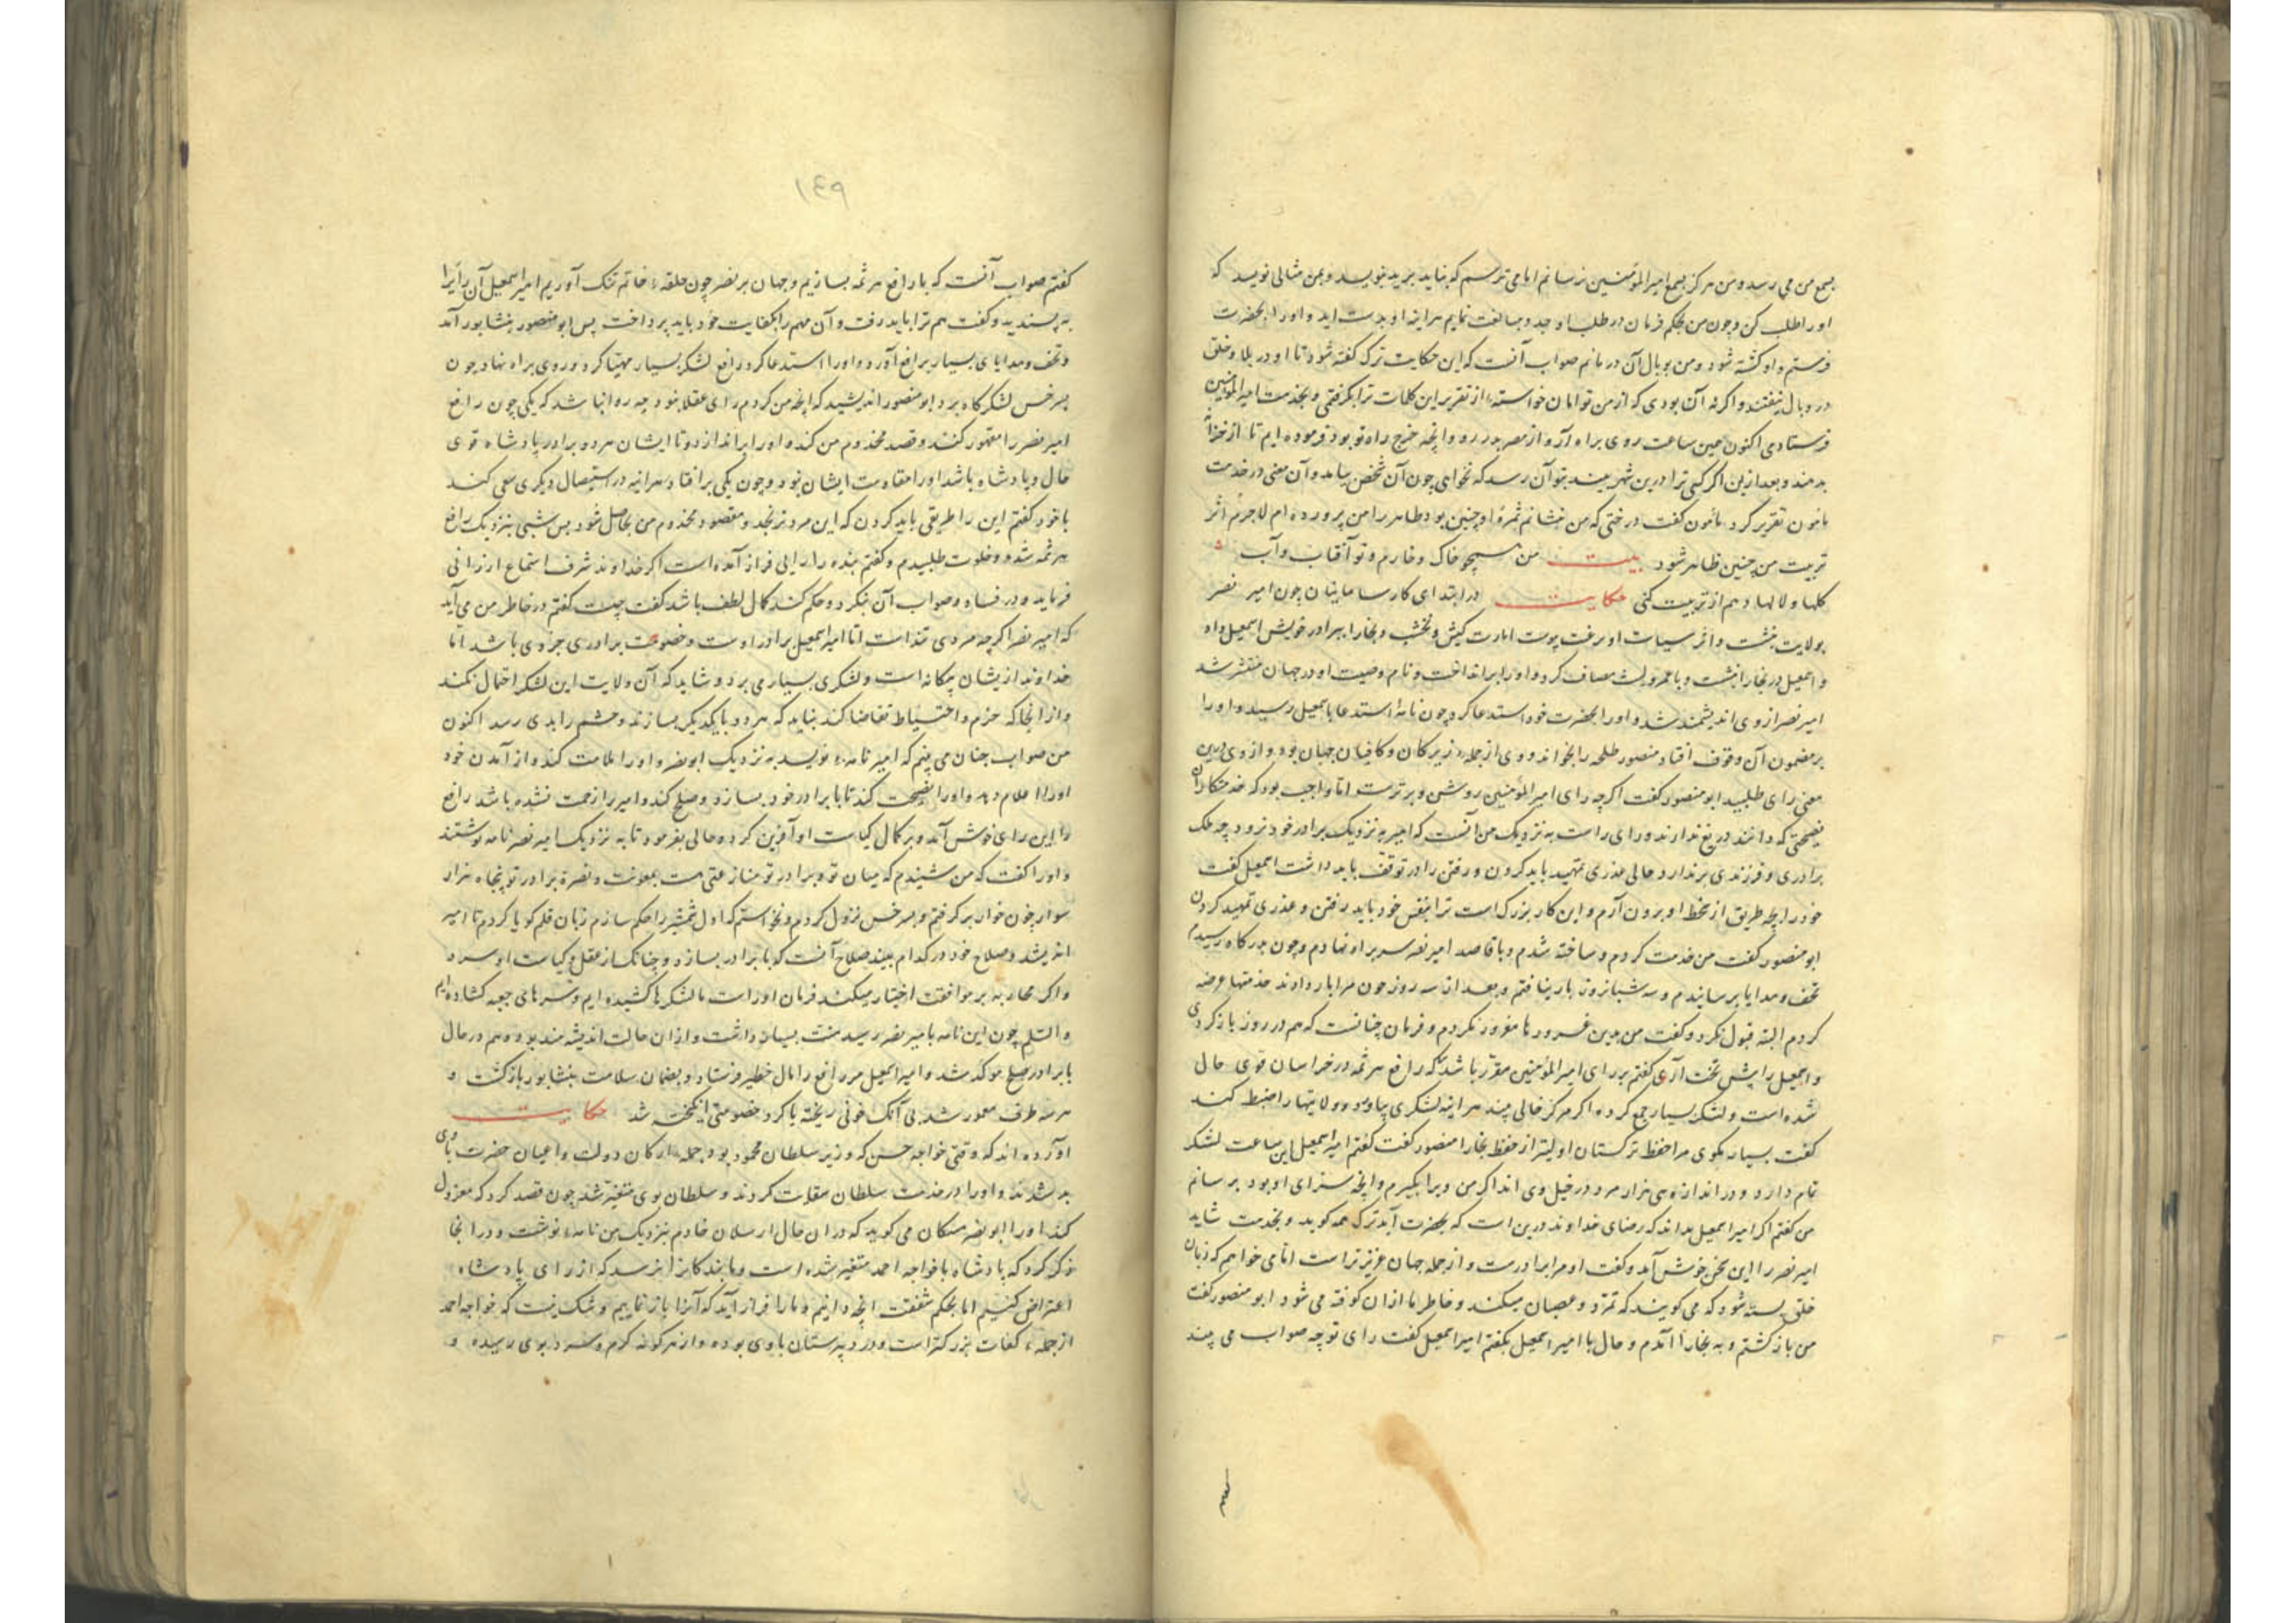 بسمع من می رسد و من هرگز بسمع امیر المؤمنین نرسانم اما می ترسم که نباید برید بنویسد و بمن مثالی نویسد که
او را طلب کن و چون من بحکم فرمان در طلب او جد و مبالغت نمایم هر اینه او بدست اید و او را بحضرت
فرستم و او کشته شود و من بوبال آن در مانم صواب آنست که این حکایت ترک گفته شود تا او در بلا و خلق
در وبال نیفتند و اگر نه آن بودی که از من تو امان خواسته از تقریر این کلمات ترا بگرفتمی و بخدمت امیر المؤمنین
فرستادمی اکنون همین ساعت روی براه آر و از مصر بدر رو و انچه خرج راه تو بود فرموده ایم تا از خزانه
بدهند و بعد ازین اگر کسی ترا درین شهر بیند بتو آن رسد که نخواهی چون آن شخص بیامد و آن معنی در خدمت
مأمون تقریر کرد مأمون گفت درختی که من نشانم ثمرهٔ او چنین بود طاهر را من پرورده ام لاجرم اثر
تربیت من چنین ظاهر شود بیت من همچو خاک و خارم و تو آفتاب و آب
گلها و لالها دهم ار تربیت کنی حکایت در ابتدای کار سامانیان چون امیر نصر
بولایت بنشست و اثر سیاست او رعیت پیوست امارت کیش و نخشب و بخارا ببرادر خویش اسمعیل داد
و اسمعیل در بخارا بنشست و با عمرو لیث مصاف کرد و او را برانداخت و نام و صیت او در جهان منتشر شد
امیر نصر از وی اندیشمند شد و او را بحضرت خود استدعا کرد چون نامهٔ استدعا باسمعیل رسید و او را
بر مضمون آن وقوف افتاد منصور طلحه را بخواند و وی از جمله زیرکان و کافیان جهان بود و از وی درین
معنی رای طلبید ابو منصور گفت اگر چه رای امیر المؤمنین روشن و برترست اما واجب بود که خدمتکاران
نصیحتی که دانند دریغ ندارند و رای راست به نزدیک من آنست که امیر به نزدیک برادر خود نرود چه ملک
برادری و فرزندی برندارد حالی عذری تمهید باید کردن و رفتن را در توقف باید داشت اسمعیل گفت
خود را بچه طریق از سخط او برون آرم و این کار بزرگ است ترا بنفس خود باید رفتن و عذری تمهید کردن
ابو منصور گفت من خدمت کردم و ساخته شدم و با قاصد امیر نصر سر براه نهادم و چون بدرگاه رسیدم
تحف و هدایا برسانیدم و سه شبانروز بار نیافتم و بعد از سه روز چون مرا بار دادند خدمتها عرضه
کردم البته قبول نکرد و گفت من بدین غرورها مغرور نگردم و فرمان چنانست که هم در روز بازگردی
و اسمعیل را پیش تخت آری گفتم بر رای امیر المؤمنین مقرر باشد که رافع هرثمه در خراسان قوی حال
شده است و لشکر بسیار جمع کرده اگر مرکز خالی بیند هر اینه لشکری بیاورد و ولایتها را ضبط کند
گفت بسیار مگوی مرا حفظ ترکستان اولیتر از حفظ بخارا منصور گفت گفتم امیر اسمعیل این ساعت لشکر
تمام دارد و در اندازه سی هزار مرد در خیل وی اند اگر من ویرا بگیرم و انچه سزای او بود برسانم
من گفتم اگر امیر اسمعیل بداند که رضای خداوند درین است که بحضرت آید ترک همه گوید و بخدمت شاید
امیر نصر را این سخن خوش آمد و گفت او مرا برادرست و از جمله جهان عزیزتر است اما می خواهم که زبان
خلق بسته شود که می گویند که تمرد و عصیان میکند و خاطر ما ازان کوفته می شود ابو منصور گفت
من بازگشتم و به بخارا آمدم و حال با امیر اسمعیل بگفتم امیر اسمعیل گفت رای تو چه صواب می بیند
١٤٩
گفتم صواب آنست که با رافع هرثمه بسازیم و جهان بر نصر چون حلقهٔ خاتم تنگ آوریم امیر اسمعیل آن رأی را
به پسندید و گفت هم ترا باید رفت و آن مهم را بکفایت خود باید پرداخت پس ابو منصور بنشابور آمد
و تحف و هدایای بسیار برافع آورد و او را استدعا کرد رافع لشکر بسیار مهیا کرد و روی براه نهاد چون
بسرخس لشکرگاه برد ابو منصور اندیشید که انچه من کردم رای عقلا نبود چه روا نباشد که یکی چون رافع
امیر نصر را مقهور کنند و قصد مخدوم من کند و او را براندازد و تا ایشان هر دو برادر پادشاه قوی
حال و پادشاه باشد او را مقاومت ایشان نبود و چون یکی برافتاد هر اینه در استیصال دیگری سعی کند
با خود گفتم این را طریقی باید کردن که این مرد نرنجد و مقصود مخدوم من بحاصل شود پس شبی بنزدیک رافع
هرثمه شدم و خلوت طلبیدم و گفتم بنده را رایی فراز آمده است اگر خداوند شرف استماع ارزانی
فرماید و در فساد و صواب آن نگرد و حکم کند کمال لطف باشد گفت چیست گفتم در خاطر من می آید
که امیر نصر اگر چه مردی تند است اما امیر اسمعیل برادر اوست و خصومت برادری جزوی باشد اما
خداوند ازیشان بیگانه است و لشکری بسیار می برد و شاید که آن ولایت این لشکر احتمال نکند
و از انجا که حزم و احتیاط تقاضا کند نباید که هر دو با یکدیگر بسازند و حشم را بدی رسد اکنون
من صواب چنان می بینم که امیر نامهٔ نویسد به نزدیک ابو نصر و او را ملامت کند و از آمدن خود
او را اعلام دهد و او را نصیحت کند تا با برادر خود بسازد و صلح کند و امیر را زحمت نشده باشد رافع
را این رای خوش آمد و بر کمال کیاست او آفرین کرد و حالی بفرمود تا به نزدیک امیر نصر نامه نوشتند
و او را گفت که من شنیدم که میان تو و برادر تو منازعتی هست بمعونت و نصرة برادر تو پنجاه هزار
سوار چون خوار برگرفتم و بسرخس نزول کردم و نخواستم که اول شمشیر را حکم سازم زبان قلم گویا کردم تا امیر
اندیشد و صلاح خود در کدام بیند صلاح آنست که با برادر بسازد و چنانک از عقل و کیاست او سزد
و اگر محاربه بر موافقت اختیار میکند فرمان او راست ما لشکرها کشیده ایم و سرهای جعبه گشاده ایم
والسلم چون این نامه بامیر نصر رسید منت بسیار داشت و ازان حالت اندیشه مند بود و هم در حال
با برادر صلح موکد شد و امیر اسمعیل مر رافع را مال خطیر فرستاد و بضمان سلامت بنشابور بازگشت و
هر سه طرف معمور شد بی آنک خونی ریخته یا کرد خصومتی انگیخته شد حکایت
آورده اند که وقتی خواجه حسن که وزیر سلطان محمود بود جمله ارکان دولت و اعیان حضرت با وی
بد شدند و او را در خدمت سلطان سقلات کردند و سلطان بوی متغیر شد چون قصد کرد که معزول
کند او را ابو نصر مشکان می گوید که دران حال ارسلان خادم بنزدیک من نامهٔ نوشت و در انجا
ذکر کرد که پادشاه با خواجه احمد متغیر شده است و ما بندگانرا نرسد که از رای پادشاه
اعتراض کنیم اما بحکم شفقت انچه دانیم و ما را فراز آید که آنرا باز نماییم و شک نیست که خواجه احمد
از جملهٔ کفات بزرگتر است و در دبیرستان با وی بوده و از هر گونه گرم و سرد بوی رسیده و